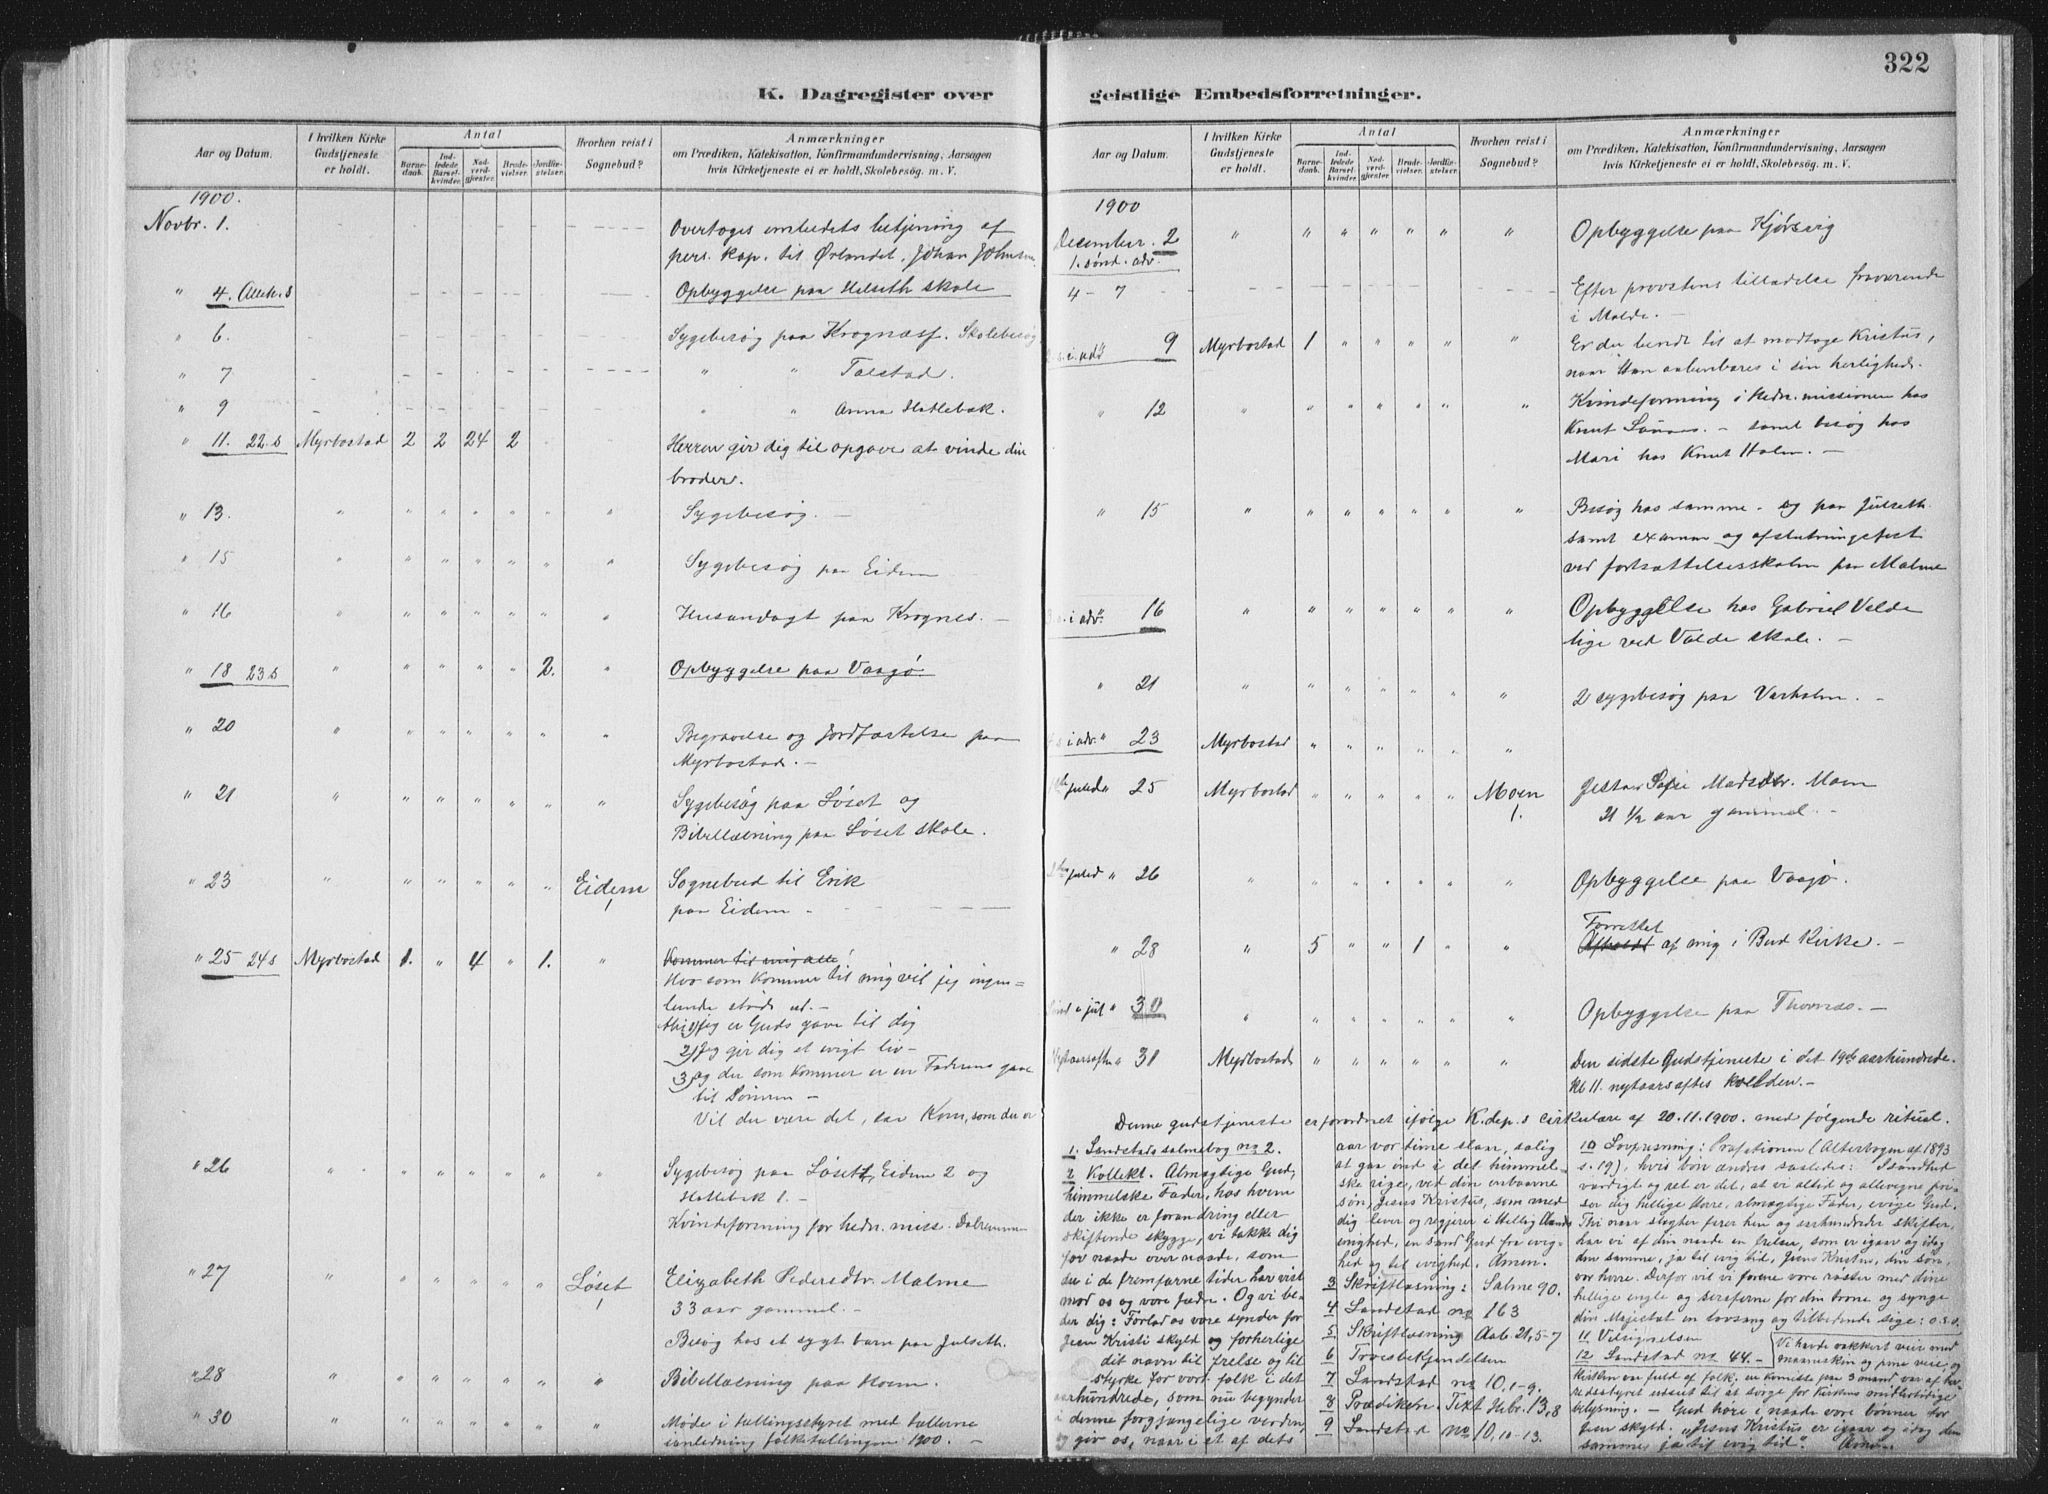 322
K. Dagregister over geistlige Embedsforretninger.
Aar og Datum.
I hvilken Kirke Gudstjeneste er holdt.
Antal
Barnedaab.
Indledede Barselkvinder.
Nadverdgjester.
Brudevielser.
Jordfæstelser.
Hvorhen reist i Sognebud?
Anmærkninger
om Prædiken, Katekisation, Konfirmandundervisning, Aarsagen
hvis Kirketjeneste ei er holdt, Skolebesög. m. V.
1900.
Novbr. 1. Overtoges embedets betjening af
pers. kap. til Ørlandet, Johan Johnsen.
" 4. Alleh. s Opbyggelse paa Helseth skole
" 6. Sygebesøg paa Krognæsf. Skolebesøg
" 7 " " Tolstad.
" 9 " " Anna Hatlebak.
" 11. 22. s Myrbostad 2 2 24 2 Herren gir dig til opgave at vinde din
broder.
" 13. " " " " " " " Sygebesøg. —
" 15 " " " " " " " Sygebesøg paa Eidem
" 16 " " " " " " " Husandagt paa Krognes. —
" 18 23 s " " " " " 2. " Opbyggelse paa Vaagø.
" 20 " " " " " " " Begravelse og Jordfæstelse paa
Myrbostad. —
" 21 " " " " " " " Sygebesøg paa Løset og
Bibellæsning paa Løset skole.
" 23 " " " " " " Eidem 1 Sognebud til Erik
paa Eidem —
" 25 24 s Myrbostad 1. " 4 " 1. " Kommer til mig alle!
Hvo som kommer til mig vil jeg ingen=
lunde støde ud. —
thi 1) jeg er Guds gave til dig
2) Jeg gir dig et evigt liv —
3) og du som kommer er en Faderens gave
til Sønnen —
Vil du være det, saa Kom, som du er
" 26 " " " " " " " Sygebesøg paa Løset 1, Eidem 2 og
Hatlebak 1. —
Kvindeforening for hedn. miss.
" 27 " " " " " " Løset 1 Elizabeth Pedersdtr. Malme
33 aar gammel. —
Besøg hos et sygt barn paa Julseth.
" 28 " " " " " " " Bibellæsning paa Hoem.
" 30 " " " " " " " Møde i tællingsstyret med tællerne
i anledning folketællingen 1900. —
Aar og Datum.
I hvilken Kirke Gudstjeneste er holdt.
Antal
Barnedaab.
Indledede Barselkvinder.
Nadverdgjester.
Brudevielser.
Jordfæstelser.
Hvorhen reist i Sognebud?
Anmærkninger
om Prædiken, Katekisation, Konfirmandundervisning, Aarsagen
hvis Kirketjeneste ei er holdt, Skolebesög. m. V.
1900
December. 2 " " " " " " " Opbyggelse paa Kjørsvig
1. sønd. adv.
4 – 7 Efter provstens tilladelse fraværende
i Molde. —
s. i. adv 9 Myrbostad 1 " " " " " Er du beredt til at modtage Kristus,
naar Han aabenbares i sin herlighed.
" 12 " " " " " " " Kvindeforening i hedn. missionen hos
Knut — samt besøg hos
Mari hos Knut Holm. —
" 15 " " " " " " " Besøg hos samme. og paa Julseth
samt examen og afslutningsfest
ved fortsættelsesskolen paa Malme
s. i adv. " 16 " " " " " " " Opbyggelse hos Gabriel Valde
lige ved Valde skole. —
" 21 " " " " " " " 2 sygebesøg paa Varholm. —
s. i adv. " 23 Myrbostad " " " " " "
juled " 25 Myrbostad " " " " " Moen 1. Sofie Madsdtr. Moen
21 1/2 aar gammel. —
juled " 26 " " " " " " " Opbyggelse paa Vaagø.
" 28 " 5 " " 1 " " Forrettet
Afholdt af mig i Bud Kirke. —
jul " 30 " " " " " " " Opbyggelse paa Thornæs. —
Nytaarsaften " 31 Myrbostad " " " " " " Den sidste Gudstjeneste i det 19de aarhundrede.
Kl 11. nytaarsaftes kvelden. —
Denne gudstjeneste er forordnet ifølge K. dep. s cirkulære af 20. 11. 1900. med følgende ritual.
1. Landstads salmebog no 2.
2 Kollekt. Almægtige Gud,
himmelske Fader, hos hvem
der ikke er forandring eller
skiftende skygge, vi takke dig
for naade over naade, som
du i de fremfarne tider har vist
mod os og vore fædre. Og vi be=
der dig: Forlad os vore synder for
Jesu Kristi skyld og forherlige
dit navn til frelse og til
styrke for vort folk i det
aarhundrede, som nu begynder
i denne forgjængelige verden,
og giv os, naar i et af dets
aar vor time slaar, salig
at gaa ind i det himmel=
ske rige, ved din enbaarne
søn, Jesus Kristus, som med
dig lever og regjerer i Hellig Aands
enighed, en sand Gud fra evig=
hed og til evighed. Amen.
3 Skriftlæsning: Salme 90.
4 Landstad no 163
5 Skriftlæsning Aab. 21, 5-7
6 Troesbekjendelsen
7 Landstad no 10, 1-9.
8 Prædiken. Text Hebr. 13, 8
9 Landstad no 10, 10-13.
10 Lovprisning: Præfationen (Alterbogen af 1893
s. 19), hvis bøn ændres saaledes: I sandhed
værdigt og ret er det, at vi altid og allevegne pri=
ser dig hellige Herre, almægtige Fader, evige Gud.
Thi naar slegter farer hen og aarhundreder skifter,
har vi af din naade en frelser, som er igaar og idag
den samme, ja til evig tid, Jesus Kristus, din søn,
vor herre. Derfor vil vi forene vore røster med dine
hellige engle og seraferne for din trone og synge
din Majestæt en lovsang og tilbedende sige: o. s. v.
11 Velsignelsen
12 Landstad no 44. —
Vi havde vakkert veir med
maaneskin og
Kirken var fuld af folk, en komite paa 3 mand var af he=
redsstyret udsent til at sørge for Kirkens midlertidige
belysning. — Gud høre i naade vore bønner for
Jesu skyld. "Jesus Kristus er igaar og idag den
samme, ja til evig tid". Amen